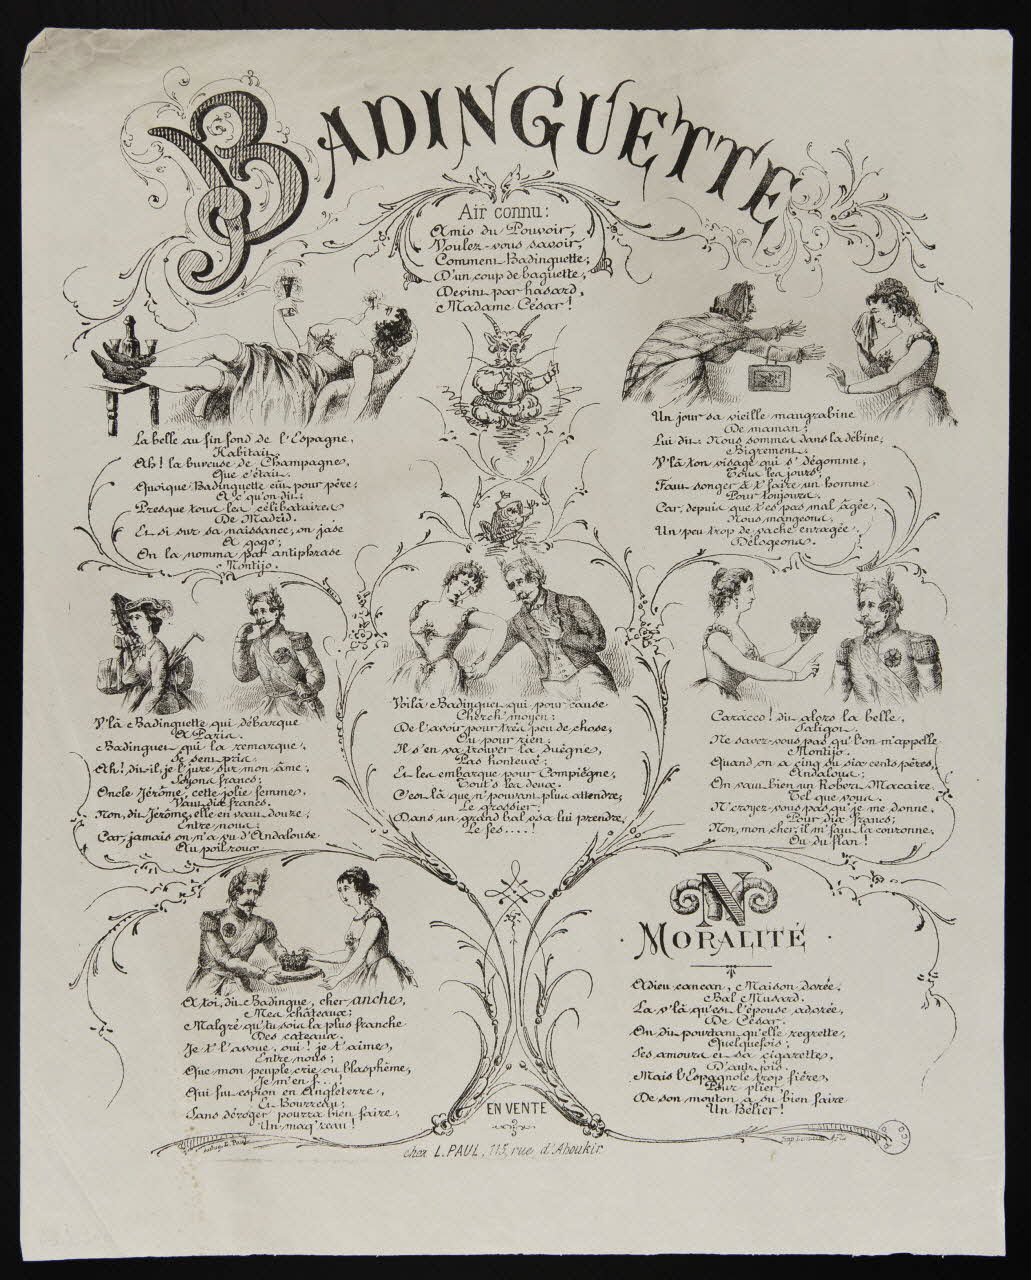 BADINGUETTE
Air connu:
Amis du Pouvoir,
Voulez-vous savoir,
Comment Badinguette,
D'un coup de baguette,
Devint par hasard,
Madame César!
La belle au fin fond de l'Espagne,
Habitait.
Ah! la buveuse de Champagne,
Que c'était.
Quoique Badinguette eût pour père,
A c'qu'on dit:
Presque tous les célibataires
De Madrid.
Et si sur sa naissance, on jase
A gogo;
On la nomma par antiphrase
Montijo.
Un jour sa vieille maugrabine
De maman;
Lui dit: Nous sommes dans la débine,
Bigrement.
V'là ton visage qui s'dégomme,
Tous les jours,
Faut songer à t'faire un homme
Pour toujours.
Car, depuis que t'es pas mal âgée,
Nous mangeons,
Un peu trop de vache enragée,
Délogeons.
V'là Badinguette qui débarque
A Paris.
Badinguet qui la remarque,
Se sent pris.
Ah! dit-il, je l'jure sur mon âme,
Soyons francs;
Oncle Jérôme, cette jolie femme,
Vaut dix francs.
Non, dit Jérôme, elle en vaut douze,
Entre nous;
Car, jamais on n'a vu d'Andalouse
Au poil roux
Voilà Badinguet qui pour cause
Cherch' moyen;
De l'avoir pour très peu de chose,
Ou pour rien.
Il s'en va trouver la duègne,
Pas honteux;
Et les embarque pour Compiègne,
Tout's les deux.
C'est là que n'pouvant plus attendre,
Le grossier;
Dans un grand bal osa lui prendre,
Le fes....!
Caracco! dit alors la belle,
Saligot.
Ne savez-vous pas qu'l'on m'appelle
Montijo.
Quand on a cinq ou six cents pères,
Andalous;
On vaut bien un Robert Macaire,
Tel que vous.
N'croyez-vous pas qu'je me donne,
Pour dix francs;
Non, mon cher, il m'faut la couronne,
Ou du flan!
A toi, dit Badingue, cher anche,
Mes châteaux;
Malgré qu'tu sois la plus franche
Des cateaux.
Je t'l'avoue, oui! je t'aime,
Entre nous;
Que mon peuple crie ou blasphème,
Je m'en f...!
Qui fut espion en Angleterre,
Et Bourreau;
Sans déroger pourra bien faire,
Un maq'reau!
N
MORALITÉ
Adieu cancan, Maison dorée,
Bal Musard.
La v'là qu'est l'épouse adorée,
De César.
On dit pourtant qu'elle regrette,
Quelquefois;
Ses amours et sa cigarette,
D'autr'fois.
Mais l'Espagnole trop fière,
Pour plier,
De son mouton a su bien faire
Un Bélier!
EN VENTE
chez L. PAUL, 115, rue d'Aboukir